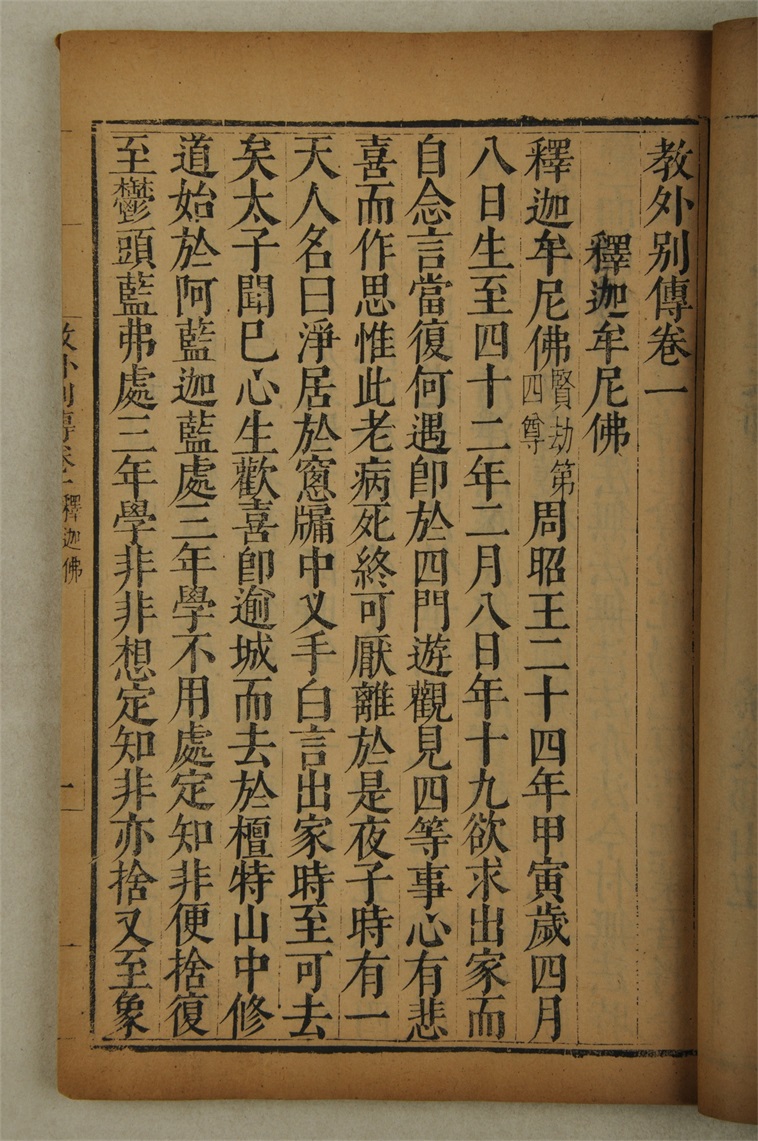 教外別傳卷一
釋迦牟尼佛
釋迦牟尼佛賢劫第四尊周昭王二十四年甲寅歲四月
八日生至四十二年二月八日年十九欲求出家而
自念言當復何遇卽於四門遊觀見四等事心有悲
喜而作思惟此老病死終可厭離於是夜子時有一
天人名曰淨居於窻牖中叉手白言出家時至可去
矣太子聞已心生歡喜卽逾城而去於檀特山中修
道始於阿藍迦藍處三年學不用處定知非便捨復
至鬱頭藍弗處三年學非非想定知非亦捨又至象
教外別傳卷一 釋迦佛 一